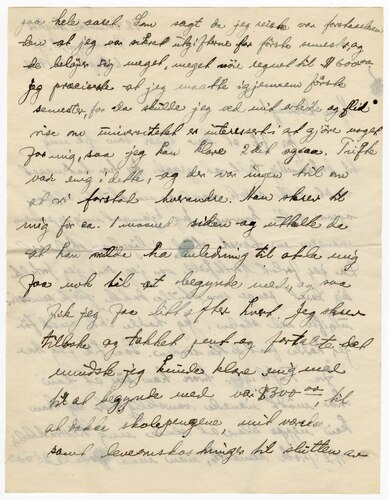 paa hele saret. Som sagt da jeg reiste var forstaaelsen
den at jeg var sikret utgifterne for første semester, og
de beløper sig meget, meget nøie regnet til $600.00
jeg preciserte at jeg maatte igjennem første
semester, for da skulde jeg ved mit arbeide og flid
vise om universitetet er interessert i at gjøre noget
for mig, saa jeg kan klare 2det ogsaa. Trifte
var enig i dette, og der var ingen tvil om
at vi forstod hverandre. Han skrev til
mig for ca. 1 maaned siden og uttalte da
at han vilde ha anledning til at la mig
faa nok til at begynde med, og saa
fik jeg faa litt efter hvert. Jeg skrev
tilbake og takket pent og fortalte det
mindste jeg kunde klare mig med
til at begynde med var $300.00, til
at betale skolepengene, mit værelse
samt leveomkostninger til slutten av